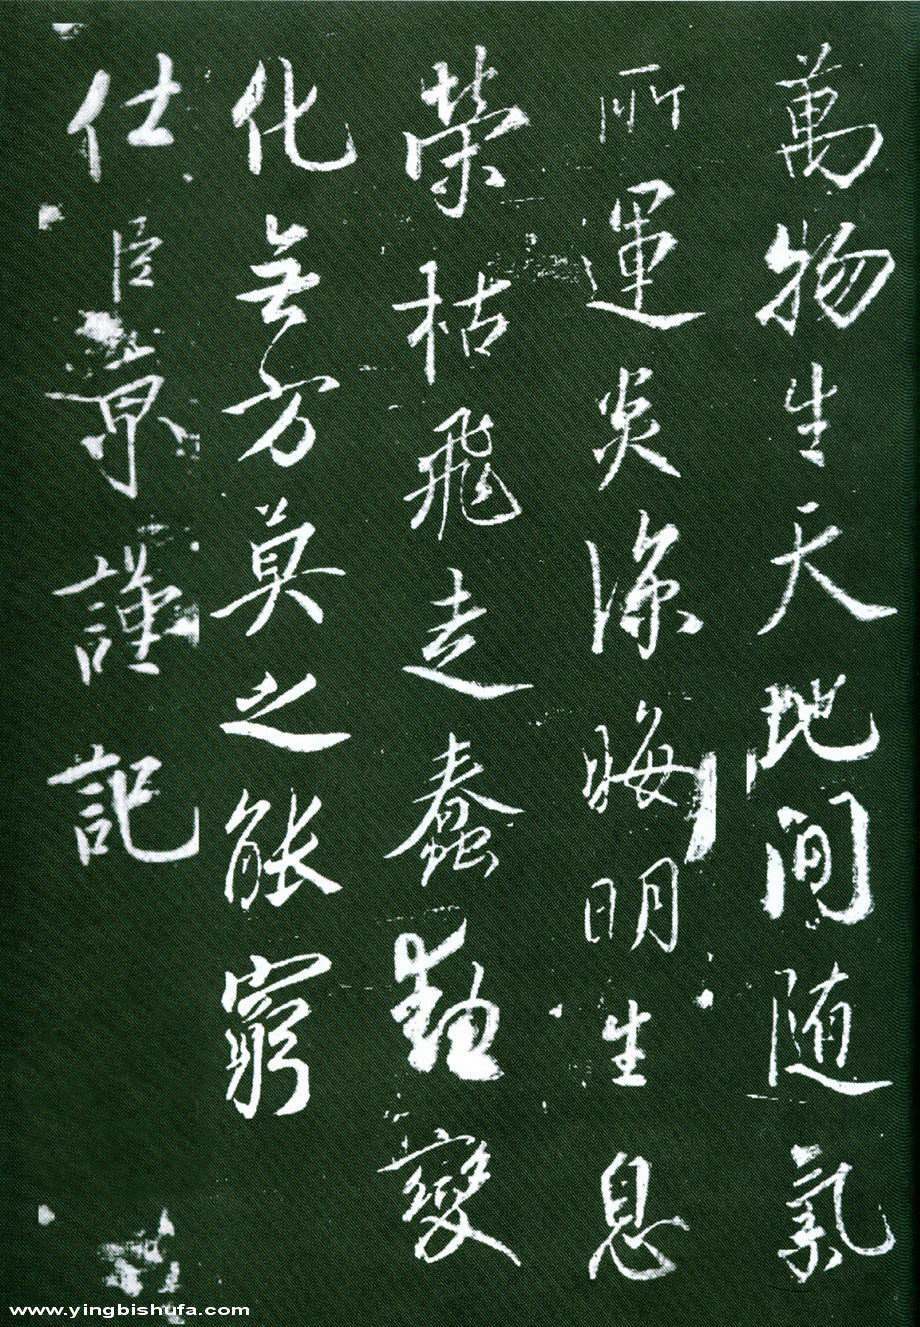 萬物生天地間随氣
所運炎涼晦明生息
榮枯飛走蠢動變
化無方莫之能窮
仕臣京謹記
www.yingbishufa.com